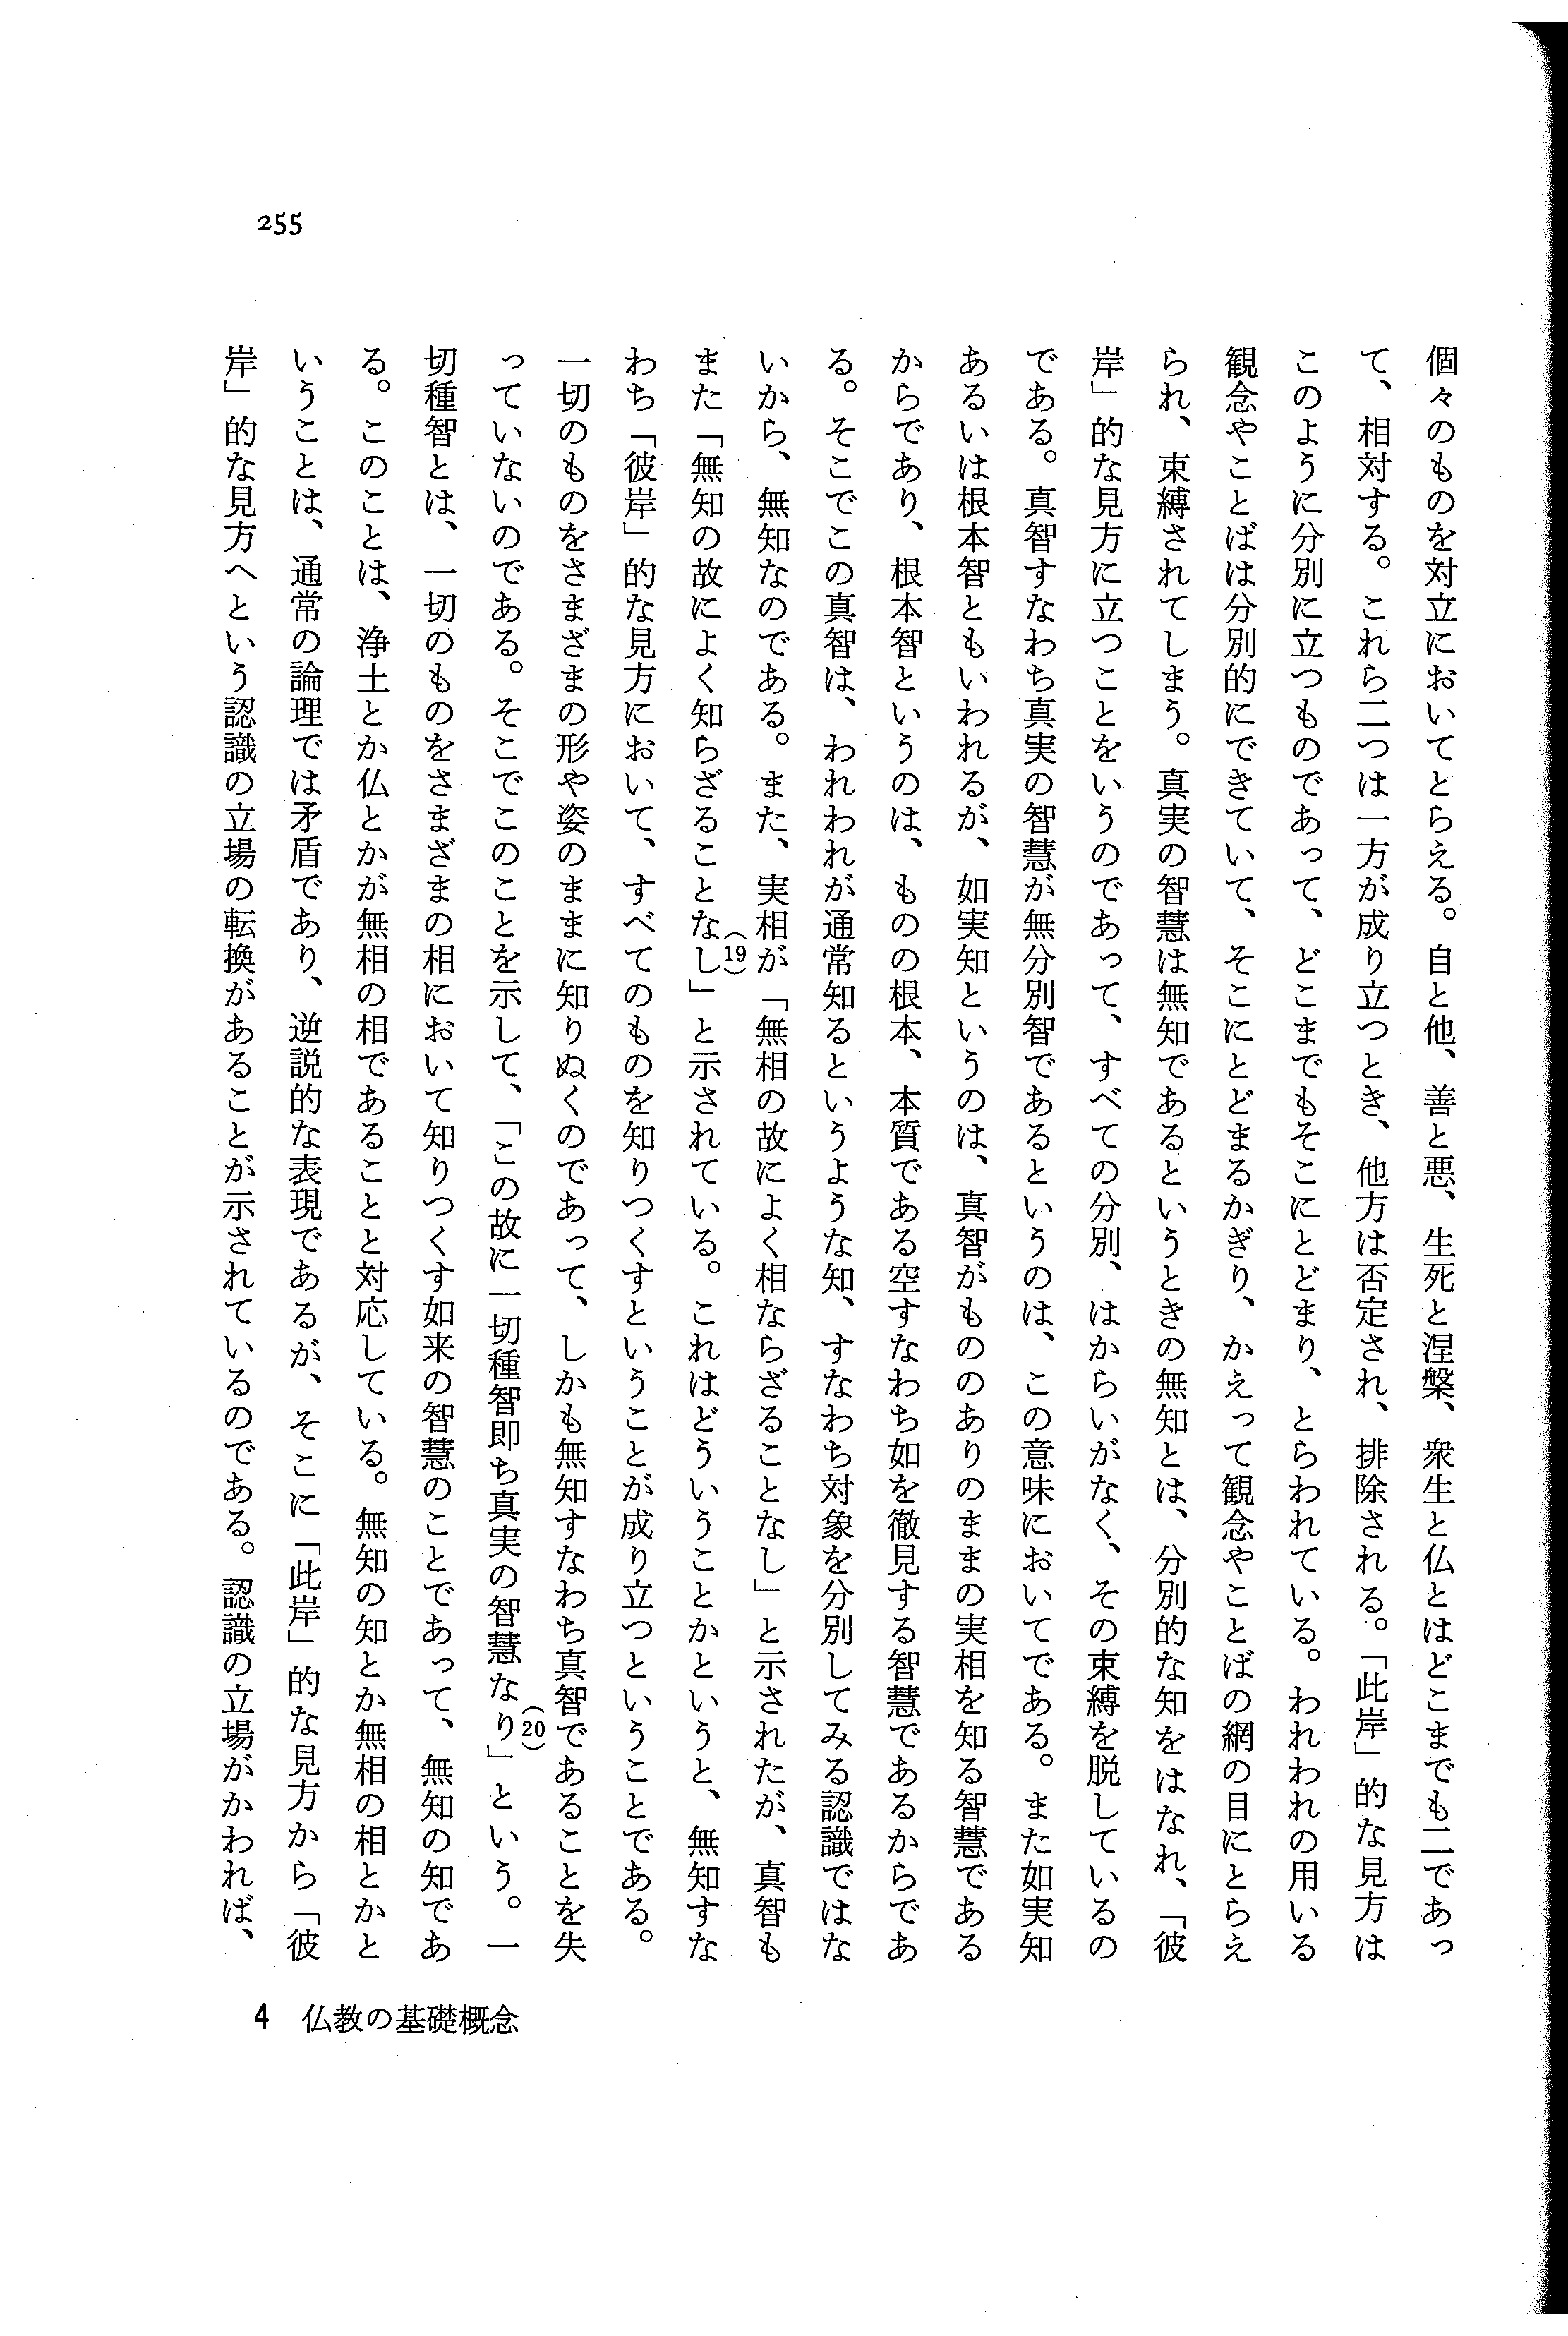 個々のものを対立においてとらえる。自と他、善と悪、生死と涅槃、衆生と仏とはどこまでも二であっ
て、相対する。これら二つは一方が成り立つとき、他方は否定され、排除される。「此岸」的な見方は
このように分別に立つものであって、どこまでもそこにとどまり、とらわれている。われわれの用いる
観念やことばは分別的にできていて、そこにとどまるかぎり、かえって観念やことばの網の目にとらえ
られ、束縛されてしまう。真実の智慧は無知であるというときの無知とは、分別的な知をはなれ、「彼
岸」的な見方に立つことをいうのであって、すべての分別、はからいがなく、その束縛を脱しているの
である。真智すなわち真実の智慧が無分別智であるというのは、この意味においてである。また如実知
あるいは根本智ともいわれるが、如実知というのは、真智がもののありのままの実相を知る智慧である
からであり、根本智というのは、ものの根本、本質である空すなわち如を徹見する智慧であるからであ
る。そこでこの真智は、われわれが通常知るというような知、すなわち対象を分別してみる認識ではな
いから、無知なのである。また、実相が「無相の故によく相ならざることなし」と示されたが、真智も
また「無知の故によく知らざることなし(19)」と示されている。これはどういうことかというと、無知すな
わち「彼岸」的な見方において、すべてのものを知りつくすということが成り立つということである。
一切のものをさまざまの形や姿のままに知りぬくのであって、しかも無知すなわち真智であることを失
っていないのである。そこでこのことを示して、「この故に一切種智即ち真実の智慧なり(20)」という。一
切種智とは、一切のものをさまざまの相において知りつくす如来の智慧のことであって、無知の知であ
る。このことは、浄土とか仏とかが無相の相であることと対応している。無知の知とか無相の相とかと
いうことは、通常の論理では矛盾であり、逆説的な表現であるが、そこに「此岸」的な見方から「彼
岸」的な見方へという認識の立場の転換があることが示されているのである。認識の立場がかわれば、
255
4 仏教の基礎概念